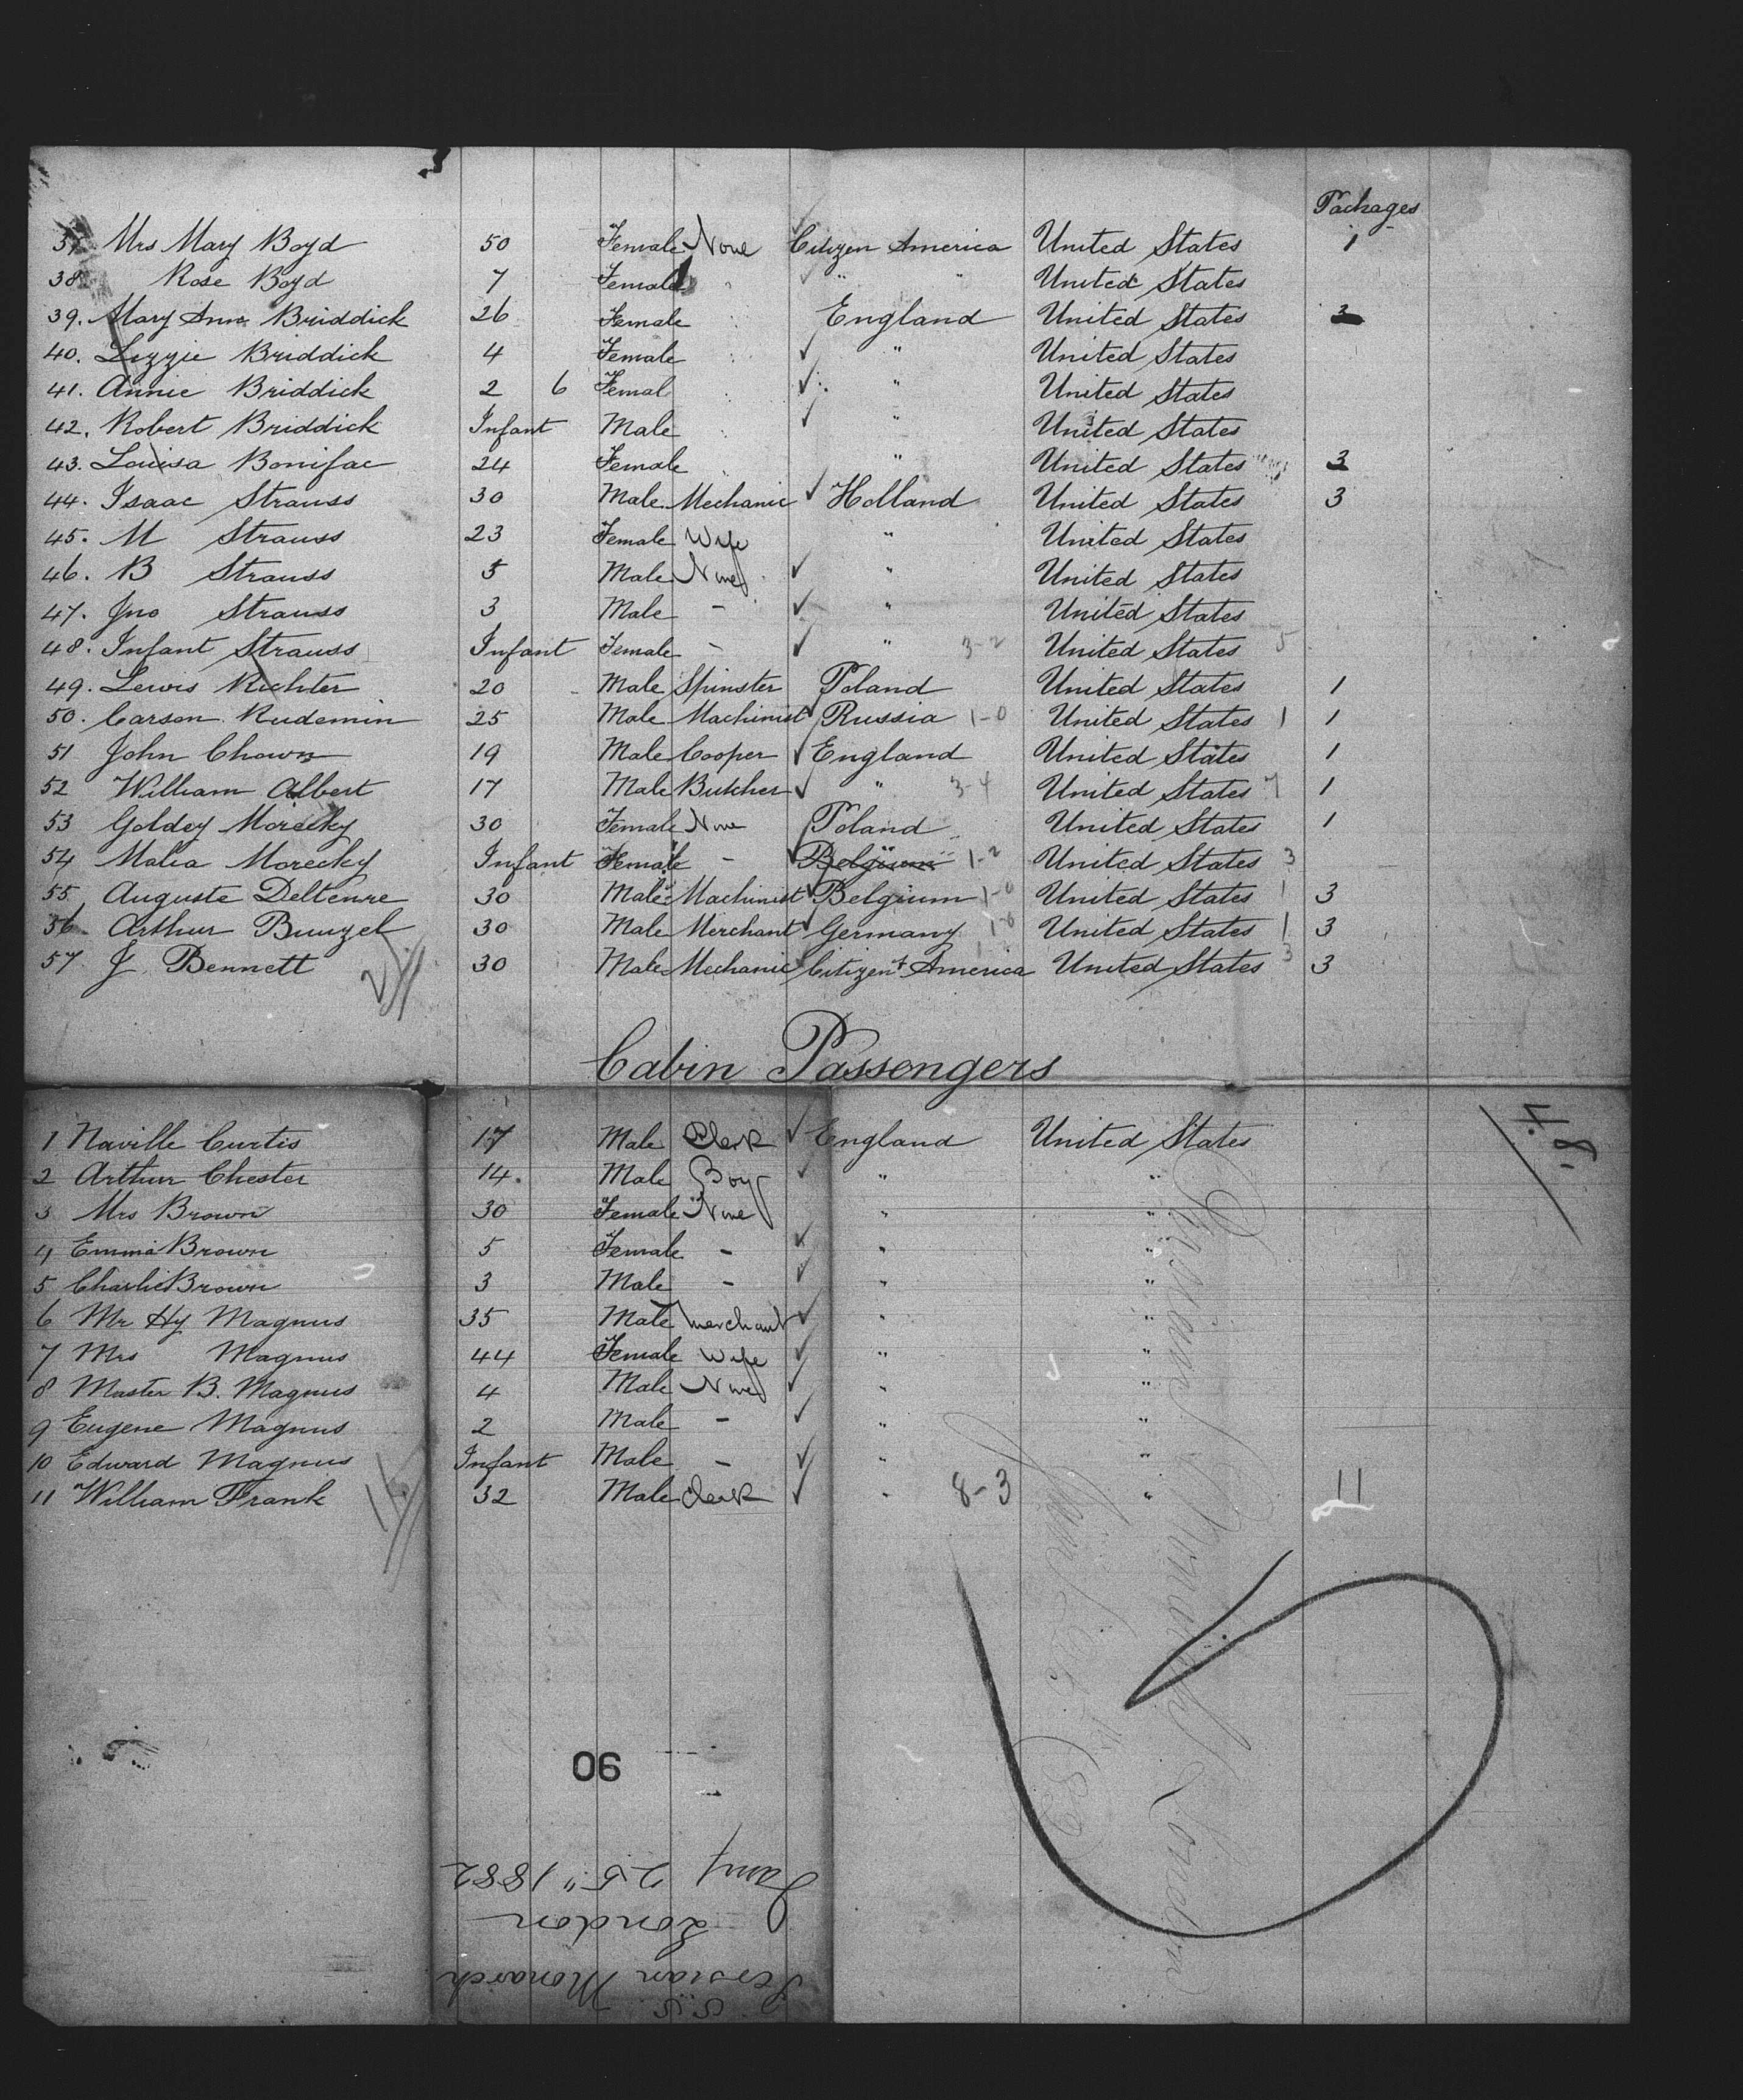 Packages
37 Mrs Mary Boyd 50 Female None Citizen America United States 1
38 Rose Boyd 7 Female " " United States
39. Mary Ann Briddick 26 Female England United States 3
40. Lizzie Briddick 4 Female " United States
41. Annie Briddick 2 6 Femal " United States
42. Robert Briddick Infant Male " United States
43. Louisa Bonifac 24 Female " United States 3
44. Isaac Strauss 30 Male Mechanic Holland United States 3
45. M Strauss 23 Female Wife " United States
46. B Strauss 5 Male None " United States
47. Jno Strauss 3 Male - " United States
48. Infant Strauss Infant Female - " 3-2 United States 5
49. Lewis Richter 20 Male Spinster Poland United States 1
50. Carson Rudemin 25 Male Machinist Russia 1-0 United States 1 1
51 John Chown 19 Male Cooper England United States 1
52 William Albert 17 Male Butcher " 3-4 United States 7 1
53 Goldey Morecky 30 Female None Poland United States 1
54 Malia Morecky Infant Female - Belgium 1-2 United States 3
55 Auguste Deltenre 30 Male Machinist Belgium 1-0 United States 1 3
56 Arthur Bunzel 30 Male Merchant Germany 1-0 United States 1 3
57 J. Bennett 30 Male Mechanic Citizen America United States 3 3
Cabin Passengers
1 Naville Curtis 17 Male Clerk England United States
2 Arthur Chester 14. Male Boy " "
3 Mrs Brown 30 Female None " "
4 Emma Brown 5 Female - " "
5 Charlie Brown 3 Male - " "
6 Mr Hy Magnus 35 Male Merchant " "
7 Mrs Magnus 44 Female Wife " "
8 Master B. Magnus 4 Male None " "
9 Eugene Magnus 2 Male - " "
10 Edward Magnus Infant Male - " "
11 William Frank 32 Male Clerk " 8-3 " 11
90
S.S.
Persian Monarch
London
Jany 25" 1882
Persian Monarch London